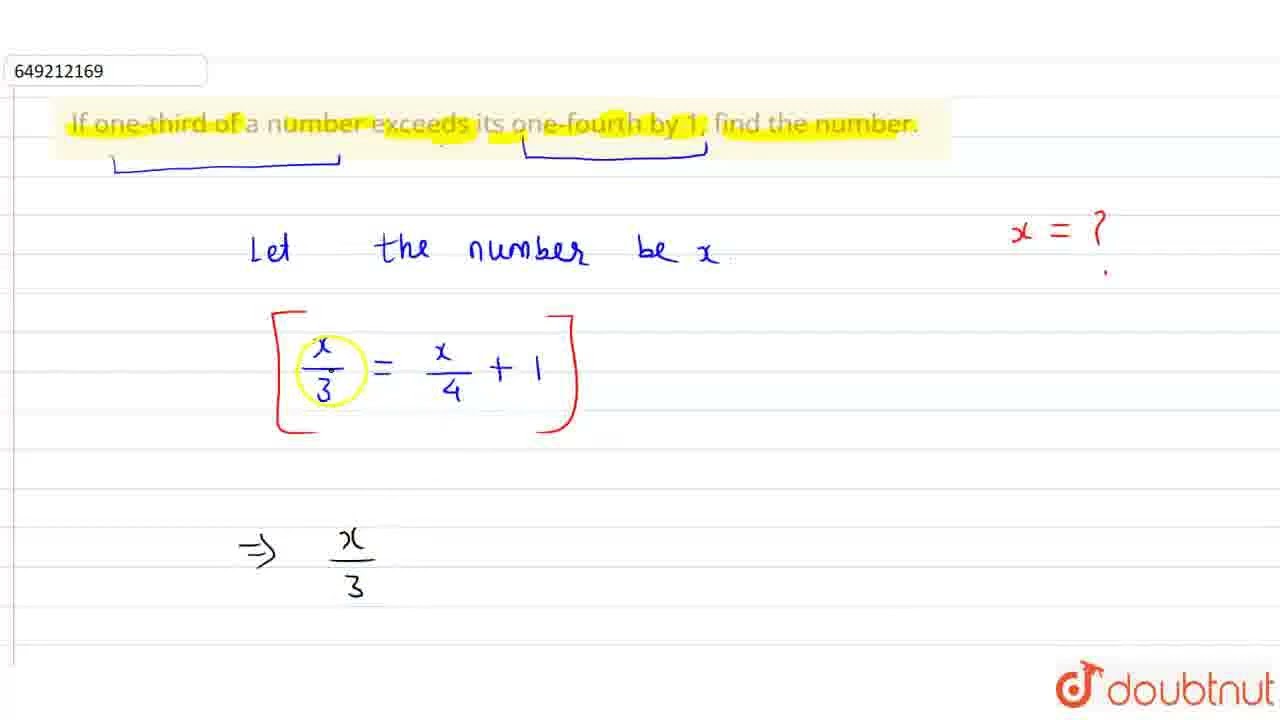 649212169
If one-third of a number exceeds its one-fourth by 1, find the number.
x = ?
Let the number be x
[x/3 = x/4 + 1]
⇒ x/3
doubtnut